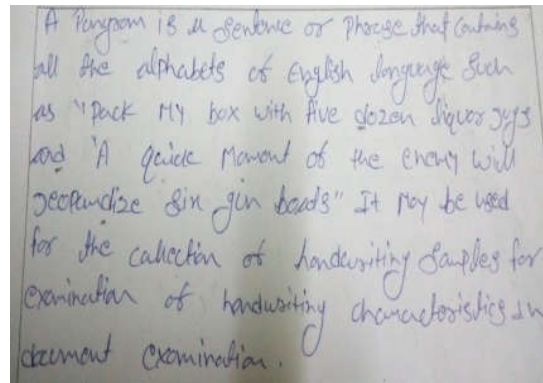 A Pangram is a sentence or Phrase that contains
all the alphabets of English language such
as "Pack My box with five dozen liquor jugs
and "A quick Moment of the enemy will
jeopardize six gun boats" It may be used
for the collection of handwriting samples for
examination of handwriting characteristics in
document examination.